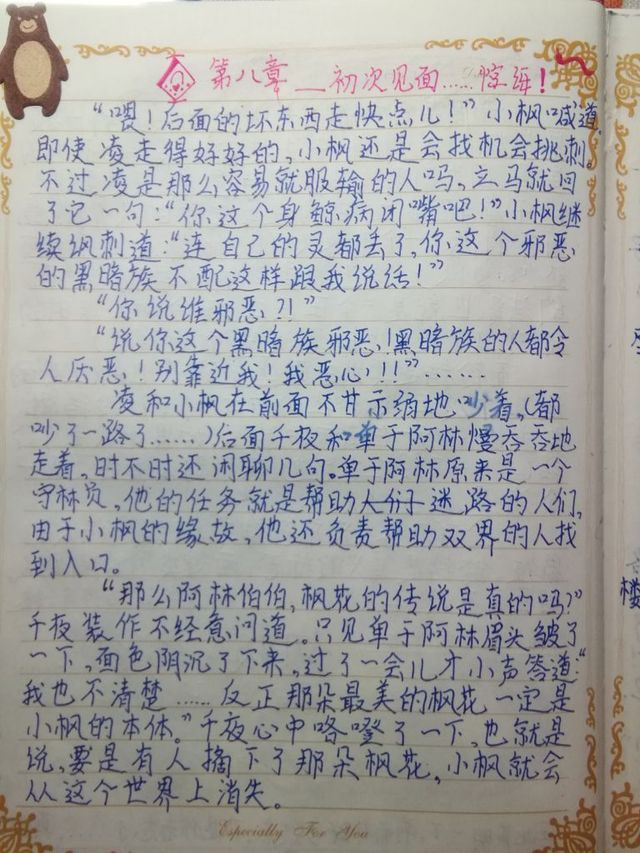 第八章__初次见面……惊讶！
“喂！后面的坏东西走快点儿！”小枫喊道，
即使凌走得好好的，小枫还是会找机会挑刺。
不过凌是那么容易就服输的人吗，立马就回
了它一句：“你这个身鲸病闭嘴吧！”小枫继
续讽刺道：“连自己的灵都丢了，你这个邪恶
的黑暗族不配这样跟我说话！”
“你说谁邪恶？！”
“说你这个黑暗族邪恶！黑暗族的人都令
人厌恶！别靠近我！我恶心！！”……
凌和小枫在前面不甘示弱地吵着，（都
吵了一路了……）后面千夜和单于阿林慢吞吞地
走着，时不时还闲聊几句。单于阿林原来是一个
守林员，他的任务就是帮助人们迷路的人们，
由于小枫的缘故，他还负责帮助双界的人找
到入口。
“那么阿林伯伯，枫花的传说是真的吗？”
千夜装作不经意问道。只见单于阿林眉头皱了
一下，面色阴沉了下来，过了一会儿才小声答道：“
我也不清楚……反正那朵最美的枫花一定是
小枫的本体。”千夜心中咯噔了一下，也就是
说，要是有人摘下了那朵枫花，小枫就会
从这个世界上消失。
Especially For You